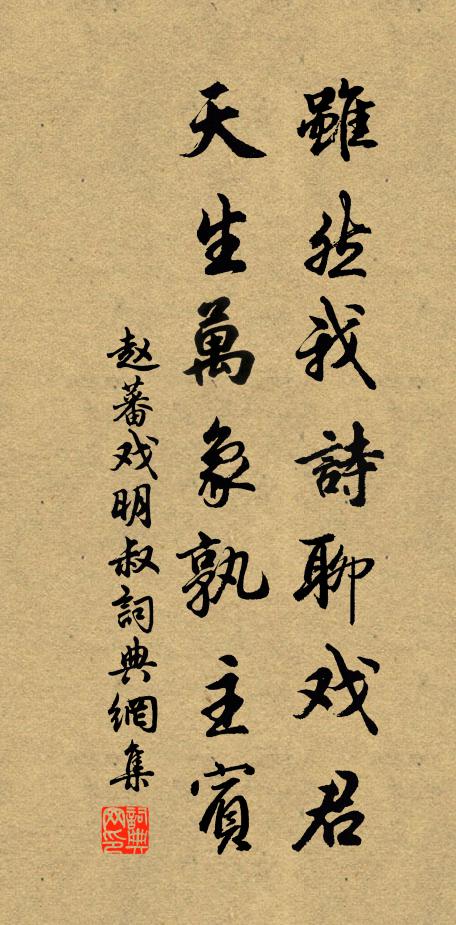 雖然我詩聊戏君
天生萬象孰主賓
赵蕃戏明叔詞典網集
詞典网印